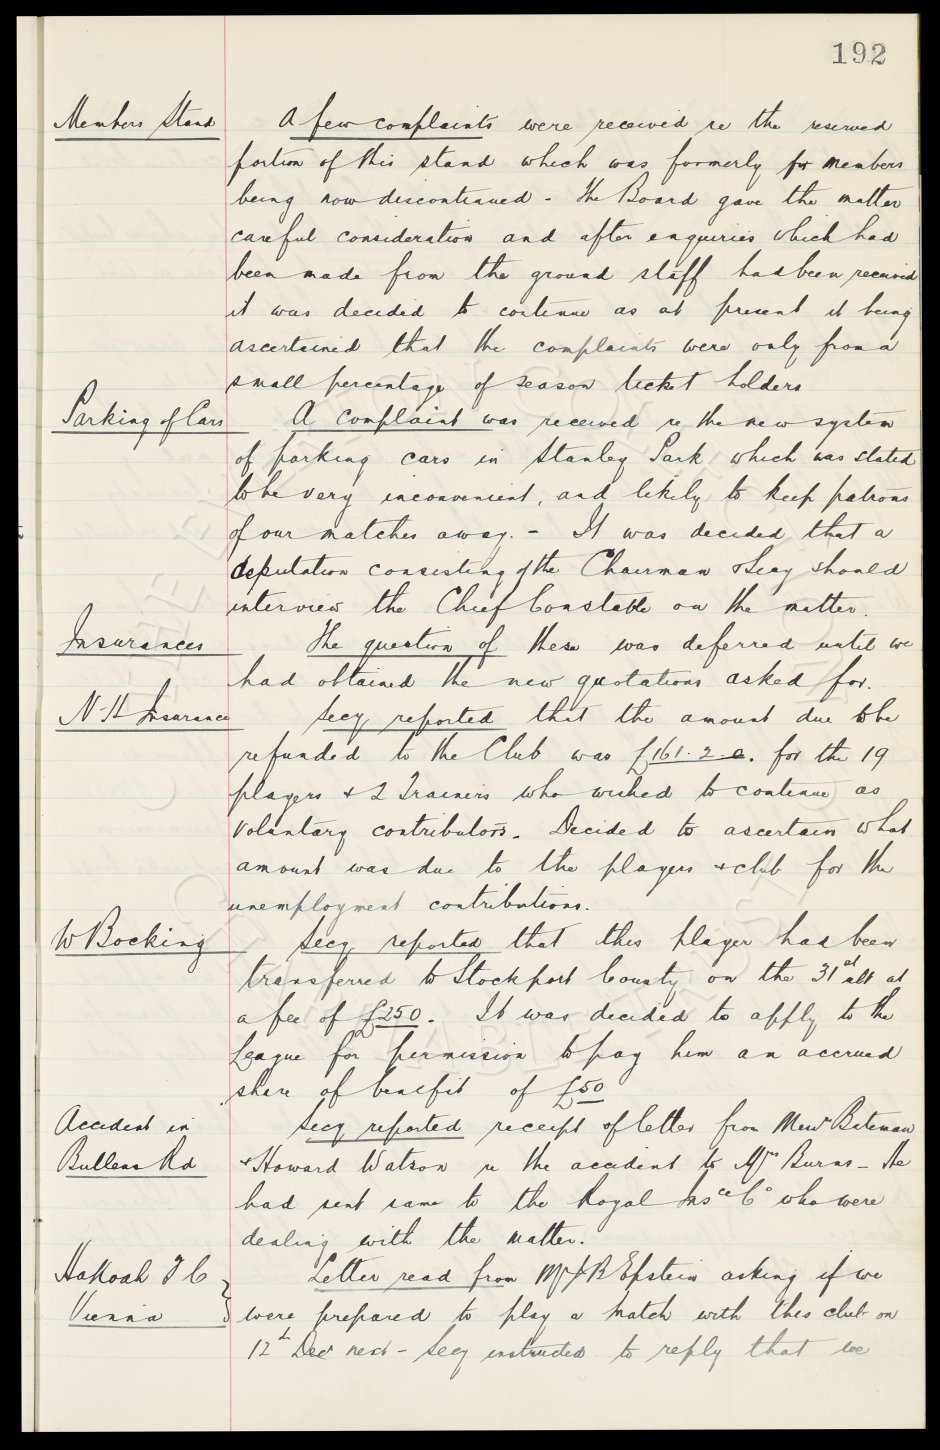 192
Members Stand A few complaints were received re the reserved
portion of this stand which was formerly for members
being now discontinued - The Board gave the matter
careful consideration and after enquiries which had
been made from the ground staff had been received
it was decided to continue as at present it being
ascertained that the complaints were only from a
small percentage of season ticket holders
Parking of Cars A complaint was received re the new system
of parking cars in Stanley Park which was stated
to be very inconvenient, and likely to keep patrons
of our matches away. - It was decided that a
deputation consisting of the Chairman & Secy should
interview the Chief Constable on the matter.
Insurances The question of these was deferred until we
had obtained the new quotations asked for.
N-H Insurance Secy reported that the amount due to be
refunded to the Club was £161. 2. 0. for the 19
players & 2 Trainers who wished to continue as
voluntary contributors. Decided to ascertain what
amount was due to the players & club for the
unemployment contributions.
W Bocking Secy reported that this player had been
transferred to Stockport County on the 31st ult at
a fee of £250. It was decided to apply to the
League for permission to pay him an accrued
share of benefit of £50
Accident in Secy reported receipt of letter from Messrs Bateman
Bullens Rd & Howard Watson re the accident to Mrs Burns - He
had sent same to the Royal Insce Co who were
dealing with the matter.
Hakoah F C Letter read from Mr J B Epstein asking if we
Vienna were prepared to play a match with this club on
12th Decr next - Secy instructed to reply that we